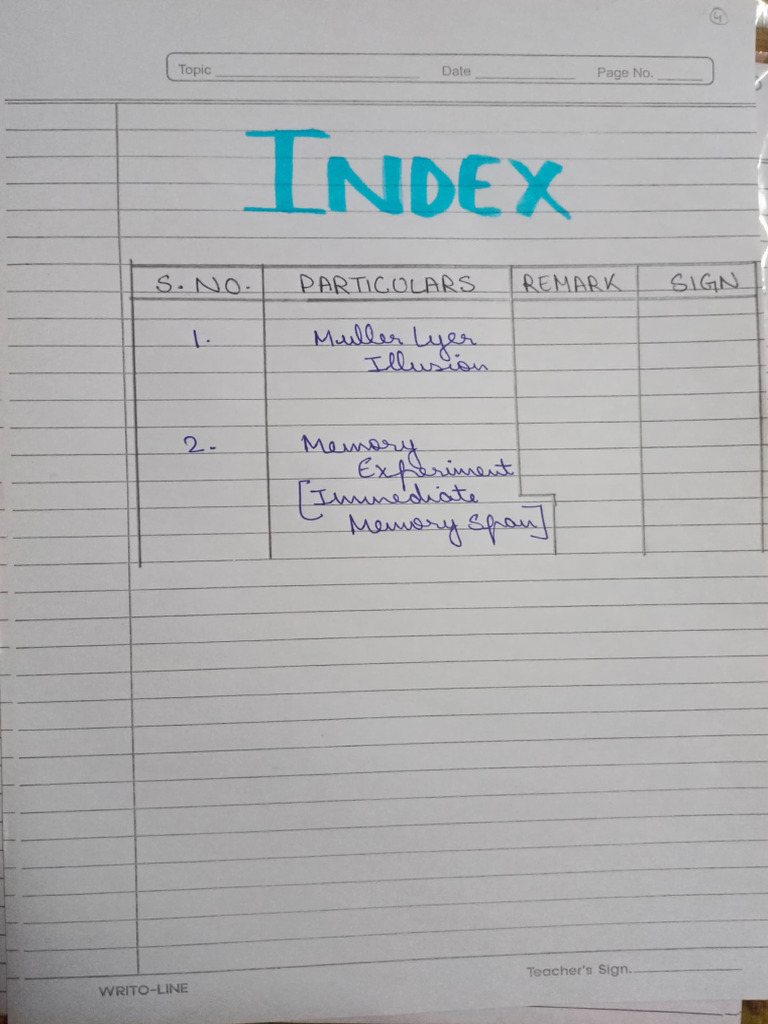 4
Topic Date Page No.
INDEX
S. NO. PARTICULARS REMARK SIGN
1. Muller Lyer
Illusion
2. Memory
Experiment
[Immediate
Memory Span]
Teacher's Sign.
WRITO-LINE